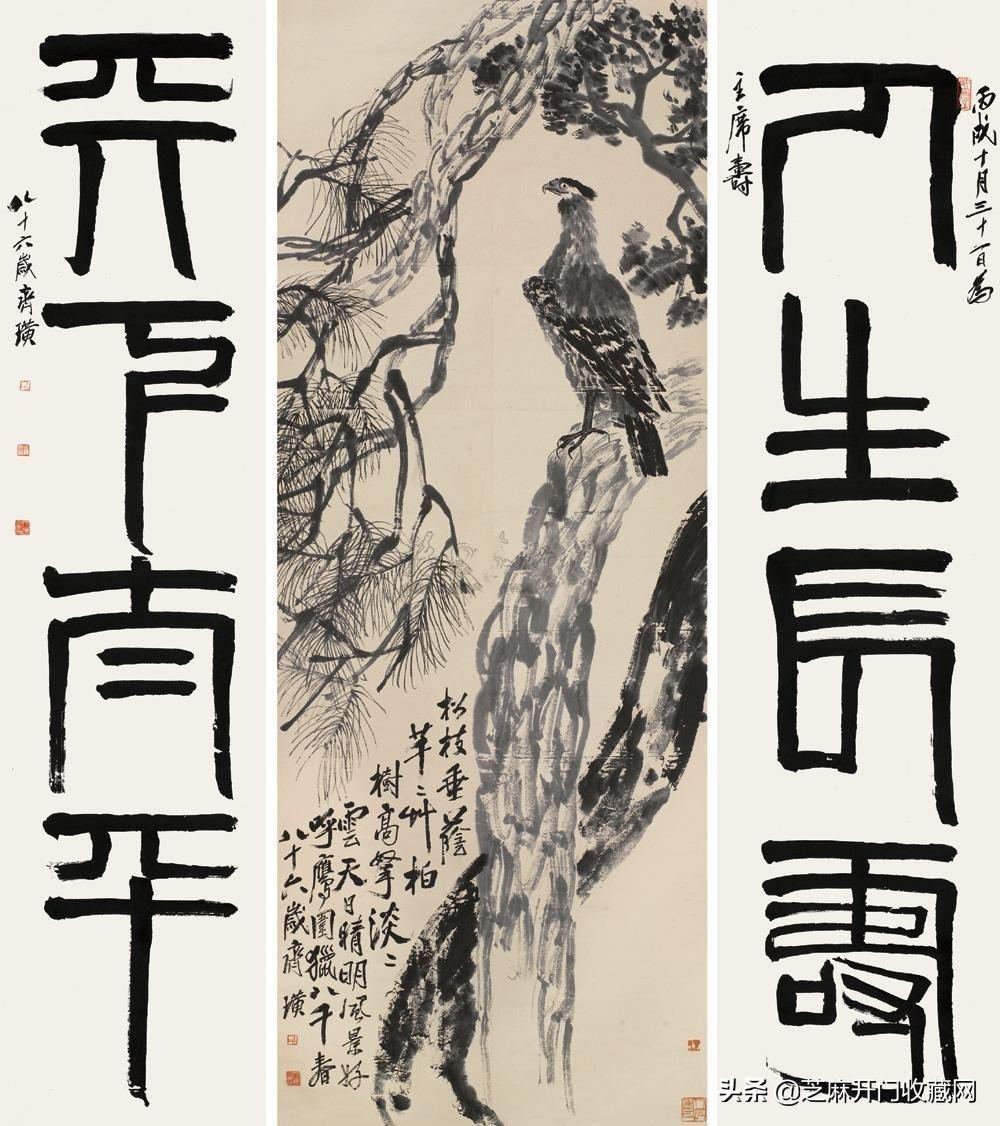 丙戌十月三十一日為
人生長壽
主席壽
松枝垂蔭
芊〻艸柏
樹高拏淡〻
雲天日晴明風景好
呼鷹圍獵八千春
八十六歲齊璜
天下太平
八十六歲齊璜
头条 @芝麻开门收藏网